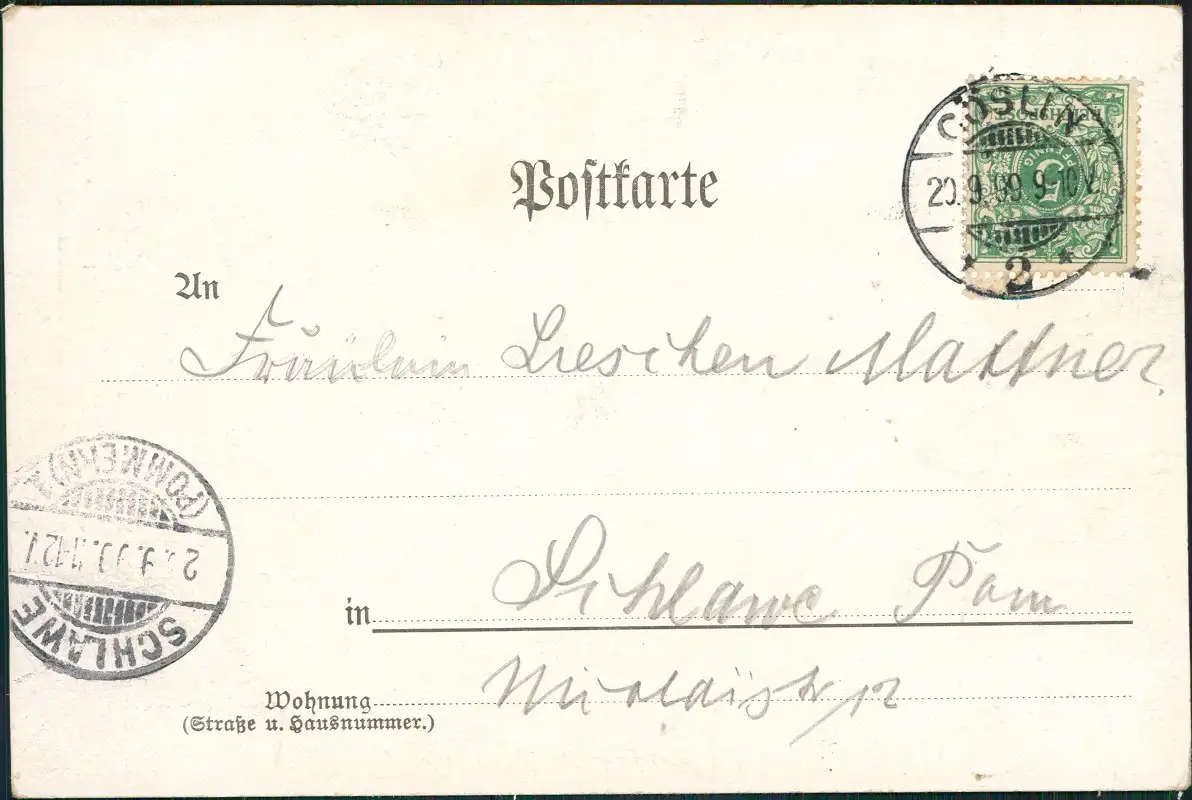 CÖSLIN
20.9.99 9-10V.
* 2 *
REICHSPOST
5
PFENNIG
Postkarte
An
Fräulein Lieschen Mattner
in Schlawe Pom
Wohnung Nicolaistr 12
(Straße u. Hausnummer.)
SCHLAWE
11-12V.
(POMMERN)